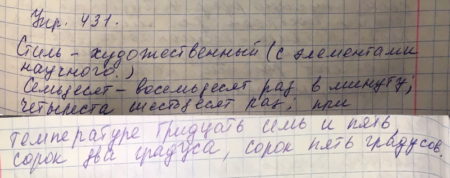 Упр. 431.
Стиль - художественный (с элементами
научного.)
Семьдесят - восемьдесят раз в минуту;
четыреста шестьдесят раз; при
температуре тридцать семь и пять,
сорок два градуса, сорок пять градусов.